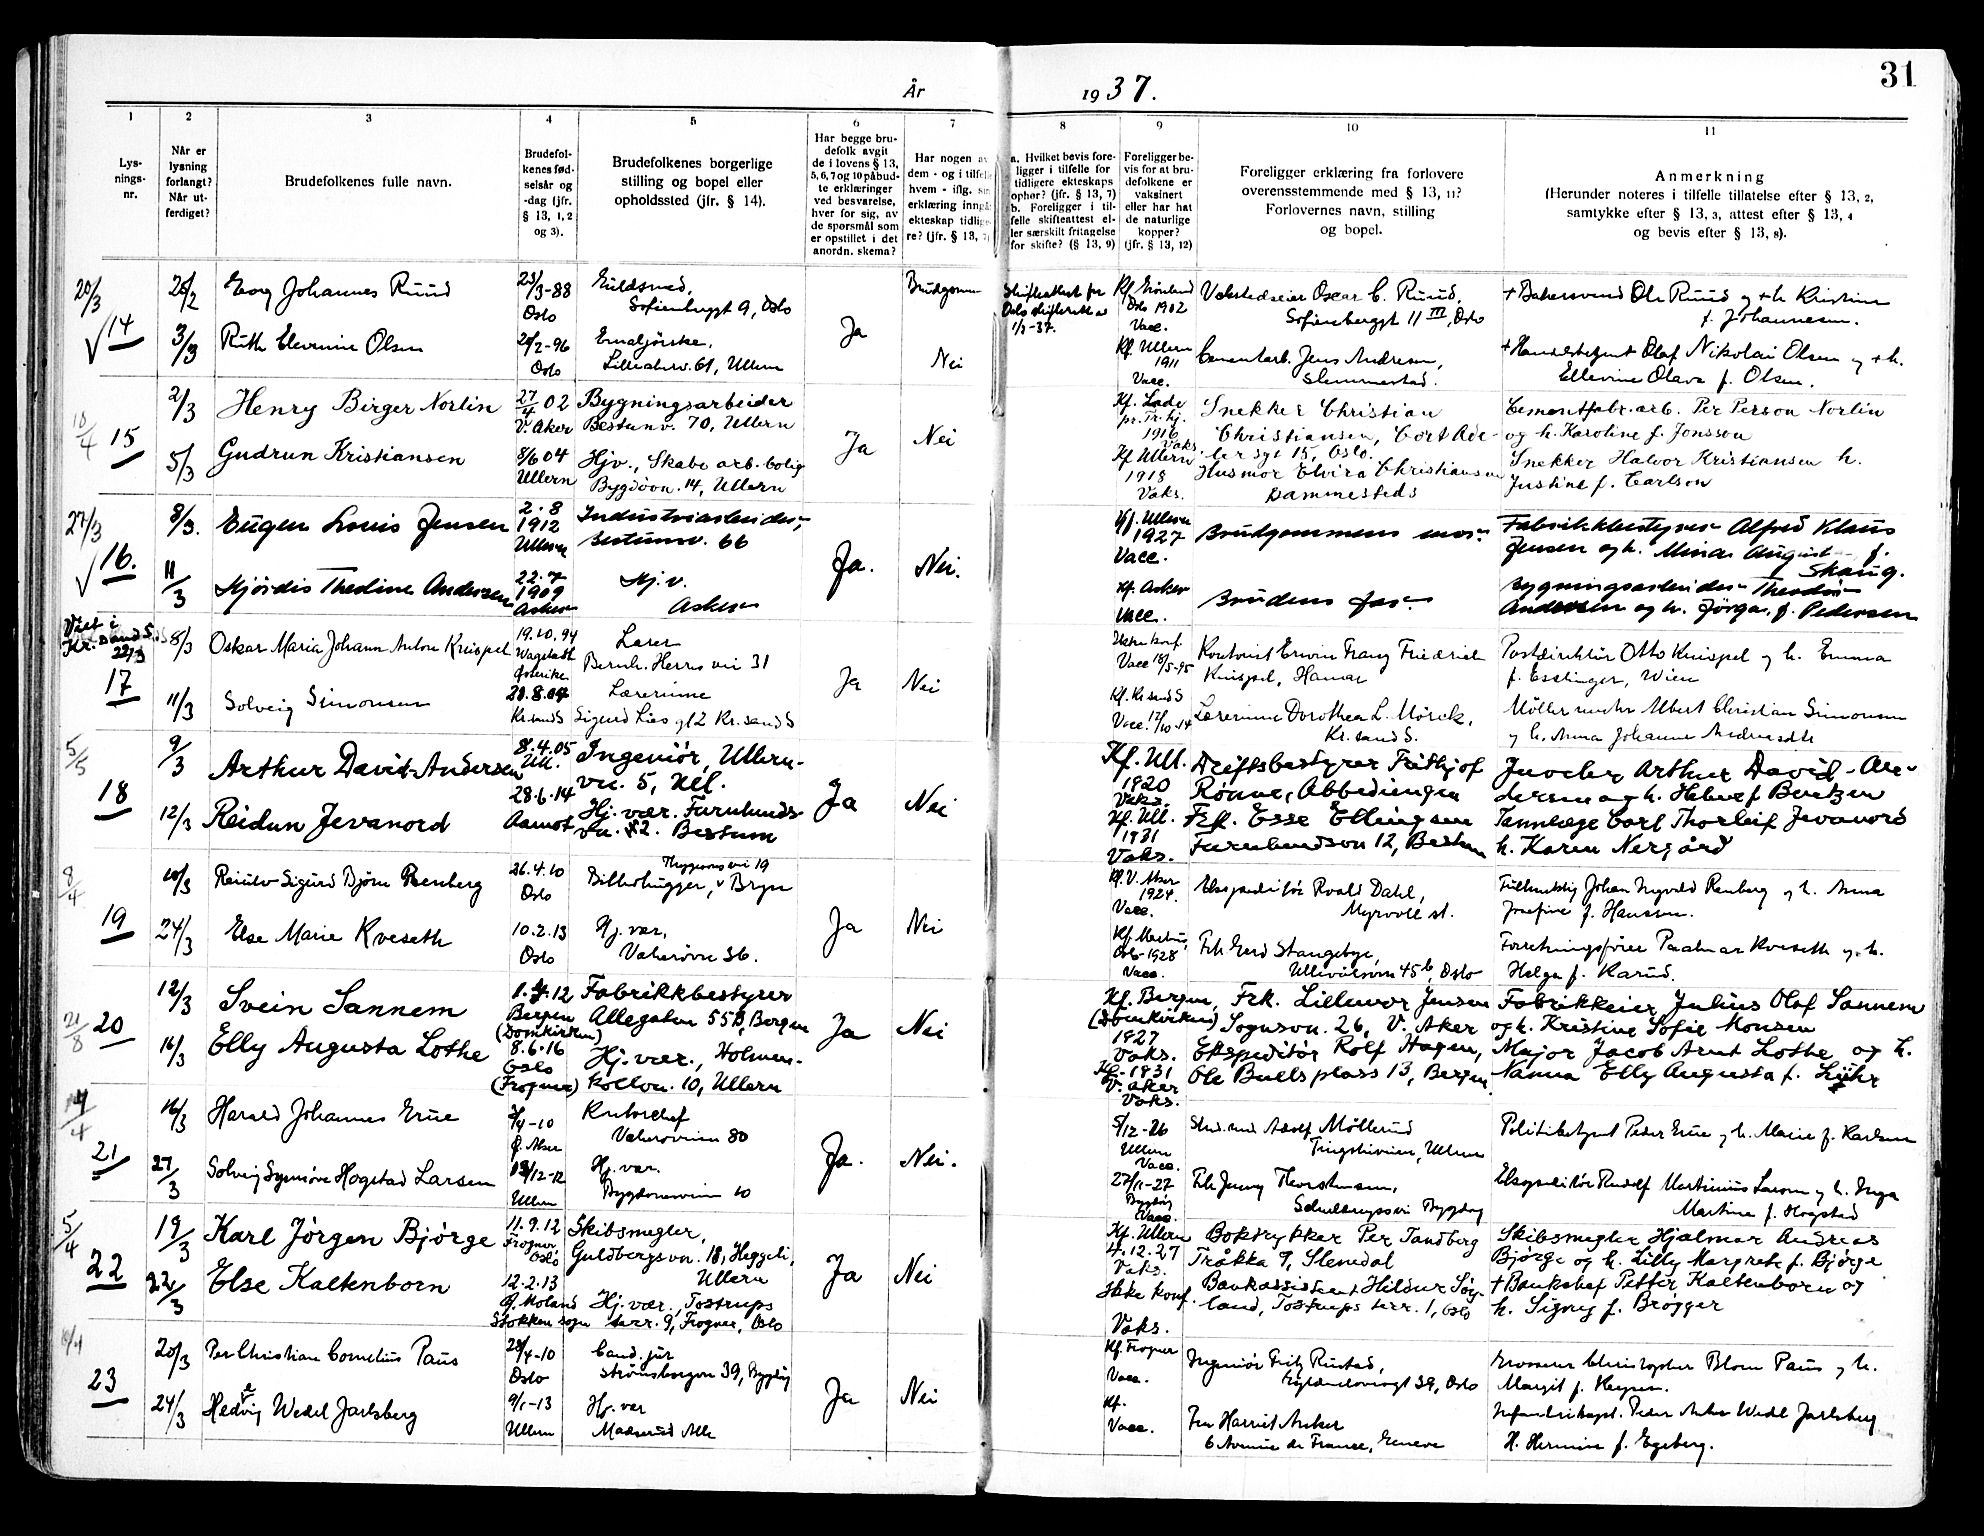 31
År 1937.
1 2 3 4 5 6 7 8 9 10 11
Lys-
nings-
nr.
Når er
lysning
forlangt?
Når ut-
ferdiget?
Brudefolkenes fulle navn.
Brudefol-
kenes fød-
selsår og
-dag (jfr.
§ 13, 1, 2
og 3).
Brudefolkenes borgerlige
stilling og bopel eller
opholdssted (jfr. § 14).
Har begge bru-
defolk avgit
de i lovens § 13,
5, 6, 7 og 10 påbud-
te erklæringer
ved besvarelse,
hver for sig, av
de spørsmål som
er opstillet i det
anordn. skema?
Har nogen av
dem - og i tilfelle
hvem - iflg. sin
erklæring inngå
ekteskap tidlige-
re? (jfr. § 13, 7)
a. Hvilket bevis fore-
ligger i tilfelle for
tidligere ekteskaps
ophør? (jfr. § 13, 7)
b. Foreligger i til-
felle skifteattest el-
ler særskilt fritagelse
for skifte? (§ 13, 9)
Foreligger be-
vis for at bru-
defolkene er
vaksinert
eller har hat
de naturlige
kopper?
(jfr. § 13, 12)
Foreligger erklæring fra forlovere
overensstemmende med § 13, 11?
Forlovernes navn, stilling
og bopel.
Anmerkning
(Herunder noteres i tilfelle tillatelse efter § 13, 2,
samtykke efter § 13, 3, attest efter § 13, 4
og bevis efter § 13, 8).
20/3 14
Johannes Ruud 23/3-88 Oslo
Gullsmed, Sofienbergt 9, Oslo
Brudgommen
Kf. Grønland Oslo 1902 Vacc.
Oscar C. Ruud,
Sofienbergt 11 III, Oslo
Ole Ruud og + h. Kristine
f. Johannesen.
3/3 Ruth Elevine Olsen 2-96 Oslo
61, Ullern
Ja Nei
Kf. Ullern 1911 Vacc.
Jens Andresen,
Slemmestad.
Olaf Nikolai Olsen og + h.
Ellevine Olava f. Olsen.
15 2/3 Henry Birger Norlin 27/4 02 V. Aker
Bygningsarbeider
Bestunv. 70, Ullern
Kf. Lade 1916 Vaks.
Snekker Christian
Christiansen, Cort Ade-
lersgt 15, Oslo.
Cementfabr. arb. Per Person Norlin
og h. Karoline f. Jonsson
5/3 Gudrun Kristiansen 8/6 04 Ullern
Hjv., Skabo arb. bolig
Bygdøvn. 14, Ullern
Ja Nei
Kf Ullern 1918 Vaks.
Husmor Elvira Christiansen
Dammesteds
Snekker Halvor Kristiansen h.
Justine f. Carlson
27/3 16. 8/3. Eugen Louis Jensen 2.8 1912 Ullern
Industriarbeider,
Bestumv. 66
Kf. Ullern 1927 Vacc.
Brudgommens mor.
Fabrikkbestyrer Alfred Klaus
Jensen og h. Mina August f.
Skaug.
11/3 Hjørdis Thedine Andersen 22.7 1909 Asker
Hj.v.
Asker
Ja. Nei.
Kf. Asker Vacc.
Brudens far.
Bygningsarbeider Theodor
Andersen og h. Jørga, f. Pedersen
Viet i
Kr.sand S.
22/3
17 8/3 Oskar Maria Johann Anton Knispel 19.10.94 Wagstadt Østerike
Lærer
Bernh. Herres vei 31
Vacc 18/5-95
Kontorist Erwin Franz Friedrich
Knispel, Hamar
Postdirektør Otto Knispel og h. Emma
f. Esslinger, Wien
11/3 Solveig Simonsen Kr.sand S
Lærerinne
Kr.sand S
Ja Nei
Kf. Kr.sand S
Lærerinne Dorothea L. Mörck,
Kr.sand S.
Albert Christian Simonsen
og h. Anna Johanne
5/5 18 9/3 Arthur David-Andersen 8.4.05 Ull.
Ingeniør, Ullern-
vn. 5, Ull.
Kf. Ull. 1920 Vaks.
Driftsbestyrer Frithjof
Rønne, Abbediengen
Juveler Arthur David-An-
dersen og h. Helene f. Bentzen
12/3 Reidun Jevanord 28.6.14 Aamot
Hj. vær. Furulunds-
vn. 12. Bestum
Ja Nei
Kf. Ull. 1931 Vaks.
Frk. Esse Ellingsen
Furulundsvn 12, Bestum
Tannlæge Carl Thorleif Jevanord
h. Karen Nergård
8/4 19 10/3 Sigurd Bjørn Renberg 26.4.10 Oslo
Bryn
Kf. V. Aker 1924. Vacc.
Roald Dahl,
Myrvoll st.
Johan Ingvald Renberg og h. Anna
Josefine f. Hanssen.
24/3 Else Marie Kveseth 10.2.13 Oslo
Hj. vær,
Vækerøvn 36.
Ja Nei
Oslo-1928 Vacc.
Frk Gerd Stangebye,
Ullevålsvn 45 b, Oslo
Forretningsfører Kveseth og h.
Helga f. Karud.
21/8 20 12/3 Svein Sannem 1.4.12 Bergen (Domkirken)
Fabrikkbestyrer
Allegaten 55 B, Bergen
Kf. Bergen (Domkirken) 1927 Vaks.
Frk. Lillemor Jensen
Sognsvn. 26, V. Aker
Fabrikkeier Julius Olaf Sannem
og h. Kristine Sofie Monsen
16/3 Elly Augusta Lothe 8.6.16 Oslo (Frogner)
Hj. vær., Holmen-
kollvn. 10, Ullern
Ja Nei
Kf. 1931 V. Aker Vaks.
Ekspeditør Rolf Hagen,
Ole Bulls plass 13, Bergen.
Major Jacob Arnt Lothe og h.
Nanna Elly Augusta f. Lühr
21 16/3 Harald Johannes Erue
Kontorchef
Vækerøveien 80
5/12-26 Ullern Vacc.
Stud. med Adolf Møllerud
Ullern
Politibetjent Peder Erue og h. Marie f. Karlsen
27/3 Solveig Synnøve Hogstad Larsen 12-12 Ullern
Hj. vær.
Bygdøveien 10
Ja. Nei.
27/11-27 Bygdøy Vacc.
Frk Jenny Thorstensen,
Bygdøy
Ekspeditør Rudolf Martinius Larsen og h. Inga
Martine f. Hogstad
5/4 22 19/3 Karl Jørgen Bjørge 11.9.12 Frogner, Oslo
Skibsmegler,
Guldbergsvn. 18, Heggeli,
Ullern
Kf. Ullern 4.12.27 Vaks.
Boktrykker Per Tandberg
Tråkka 9, Slemdal
Skibsmegler Hjalmar Andreas
Bjørge og h. Lilly Margrete f. Bjørge
22/3 Else Kaltenborn 12.2.13 Ø. Moland Stokken sogn
Hj. vær., Tostrups
terr. 9, Frogner, Oslo
Ja Nei
Ikke konf. Vaks.
Bankassistent Hildur Sør-
land, Tostrups terr. 1, Oslo
+ Banksjef Petter Kaltenborn og
h. Signy f. Brøgger
23 20/3 Per Christian Cornelius Paus 28/4-10 Oslo
Cand. jur
Strømsborgvn 39, Bygdøy
Kf. Frogner Vacc.
Ingeniør Fritz Rustad,
39, Oslo
Grosserer Christopher Blom Paus og h.
Margit f. Heyer.
24/3 Hedevig Wedel Jarlsberg 9/1-13 Ullern
Hj. vær
Madserud Alle
Ja Nei
Kf. Vacc.
Fru Harriet Anker
6 Avenue de France, Geneve
Peder Anker Wedel Jarlsberg
H. Hermine f. Egeberg.